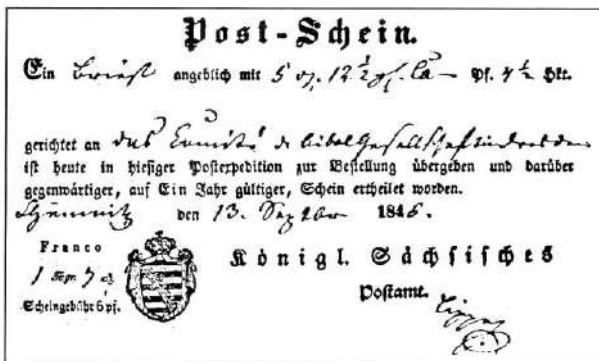 Post-Schein.
Ein Brief angeblich mit 5 12½ Pf. 4½ Lkt.
gerichtet an das Comité d. Bibelgesellschaft in Dresden
ist heute in hiesiger Postexpedition zur Bestellung übergeben und darüber
gegenwärtiger, auf Ein Jahr gültiger, Schein ertheilet worden.
Chemnitz den 13. Septbr 1846.
Franco
Königl. Sächsisches
1 Ngr. 7
Scheingebühr 6 pf.
Postamt.